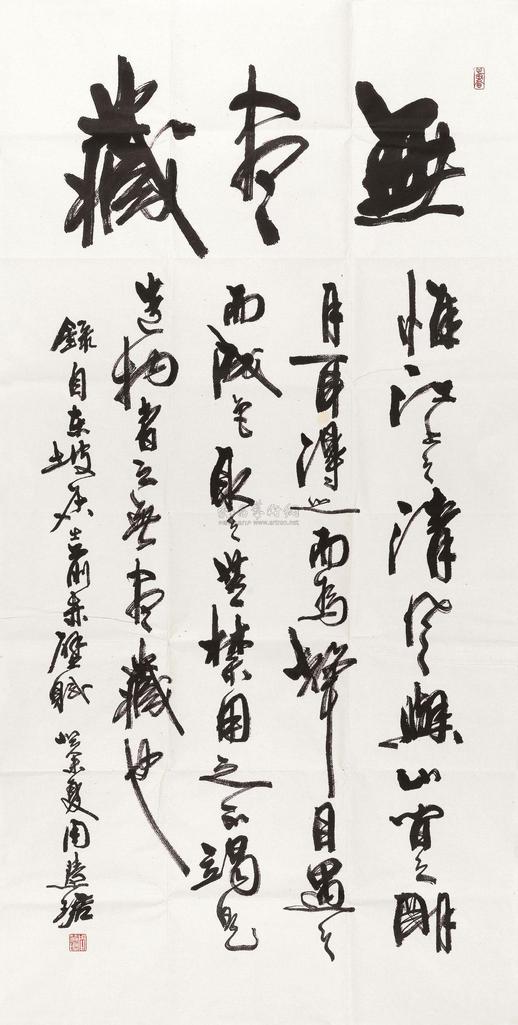 無盡藏
惟江上之清風與山間之明
月耳得之而為聲目遇之
而成色取之無禁用之不竭是
造物者之無盡藏也
錄自東坡居士前赤壁賦 夏周慧珺
www.artron.net